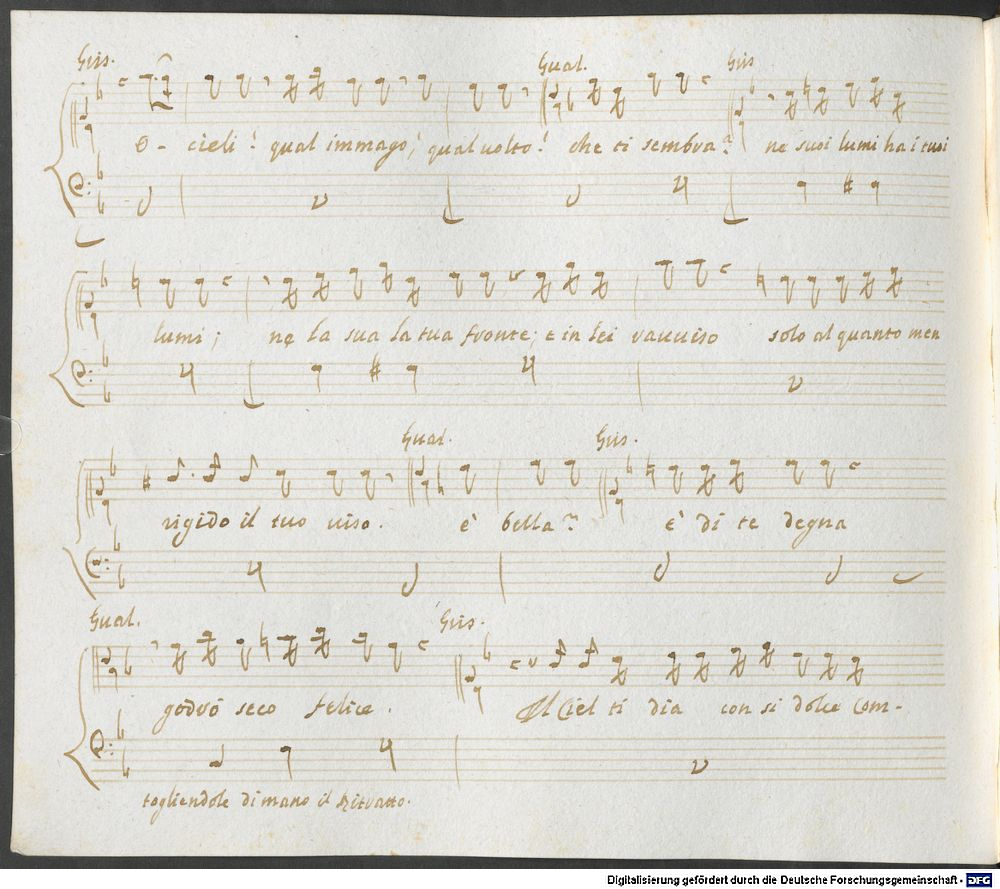 Gris. Gual. Gris
O- cieli! qual immago, qual uolto! che ti sembra? ne suoi lumi ha i tuoi
lumi; ne la sua la tua fronte; e in lei rauuiso solo al quanto men
Gual. Gris.
rigido il tuo uiso. è bella? è di te degna
Gual. Gris.
godrò seco felice. Il Ciel ti dia con si dolce Com-
togliendole di mano il Ritratto.
Digitalisierung gefördert durch die Deutsche Forschungsgemeinschaft - DFG